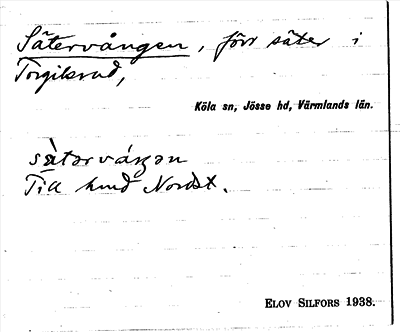 Sätervången, förr säter i
Torgilsrud,
Köla sn, Jösse hd, Värmlands län.
sä̀tərváŋən
Till hmd Nordst.
ELOV SILFORS 1938.